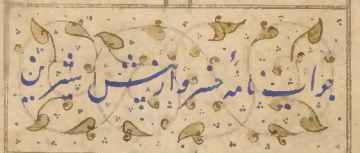 جواب نامهٔ خسرو از پیش شیرین